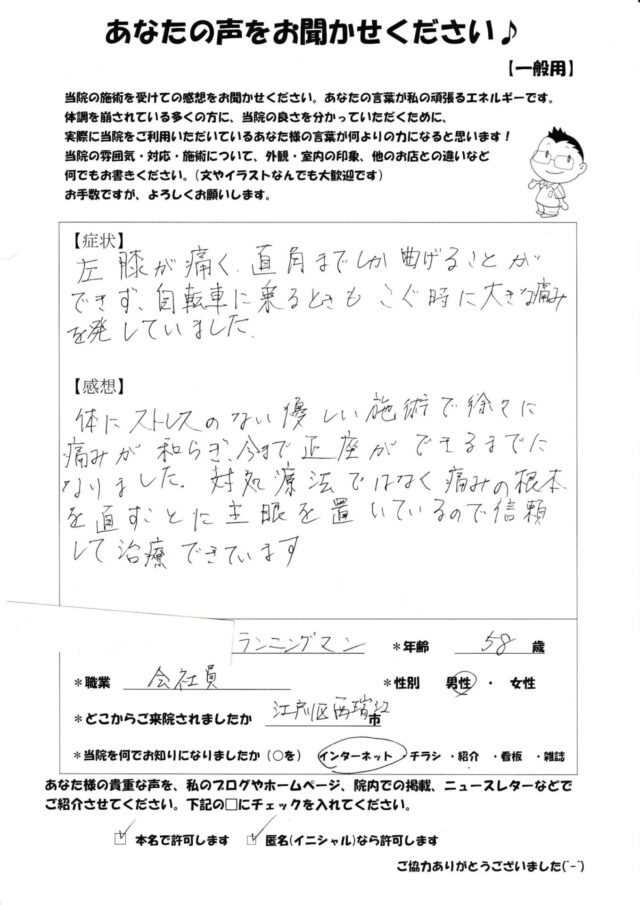 あなたの声をお聞かせください♪
【一般用】
当院の施術を受けての感想をお聞かせください。あなたの言葉が私の頑張るエネルギーです。
体調を崩されている多くの方に、当院の良さを分かっていただくために、
実際に当院をご利用いただいているあなた様の言葉が何よりの力になると思います！
当院の雰囲気・対応・施術について、外観・室内の印象、他のお店との違いなど
何でもお書きください。（文やイラストなんでも大歓迎です）
お手数ですが、よろしくお願いします。
【症状】
左膝が痛く、直角までしか曲げることが
できず、自転車に乗るときもこぐ時に大きな痛み
を発していました。
【感想】
体にストレスのない優しい施術で徐々に
痛みが和らぎ、今まで正座ができるまでに
なりました。対処療法ではなく痛みの根本
を直すことに主眼を置いているので信頼
して治療できています
ランニングマン ＊年齢 58 歳
＊職業 会社員 ＊性別 男性 ・ 女性
＊どこからご来院されましたか 江戸川区西瑞江 市
＊当院を何でお知りになりましたか（○を） インターネット ・チラシ ・紹介 ・看板 ・雑誌
あなた様の貴重な声を、私のブログやホームページ、院内での掲載、ニュースレターなどで
ご紹介させてください。下記の□にチェックを入れてください。
☑ 本名で許可します ☑ 匿名(イニシャル)なら許可します
ご協力ありがとうございました(^-^)